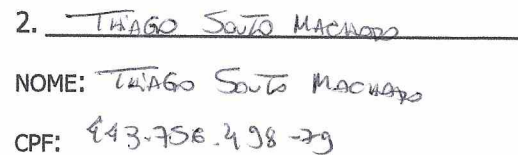 2. THIAGO SOUTO MACHADO
NOME: THIAGO SOUTO MACHADO
CPF: 443.756.498-79